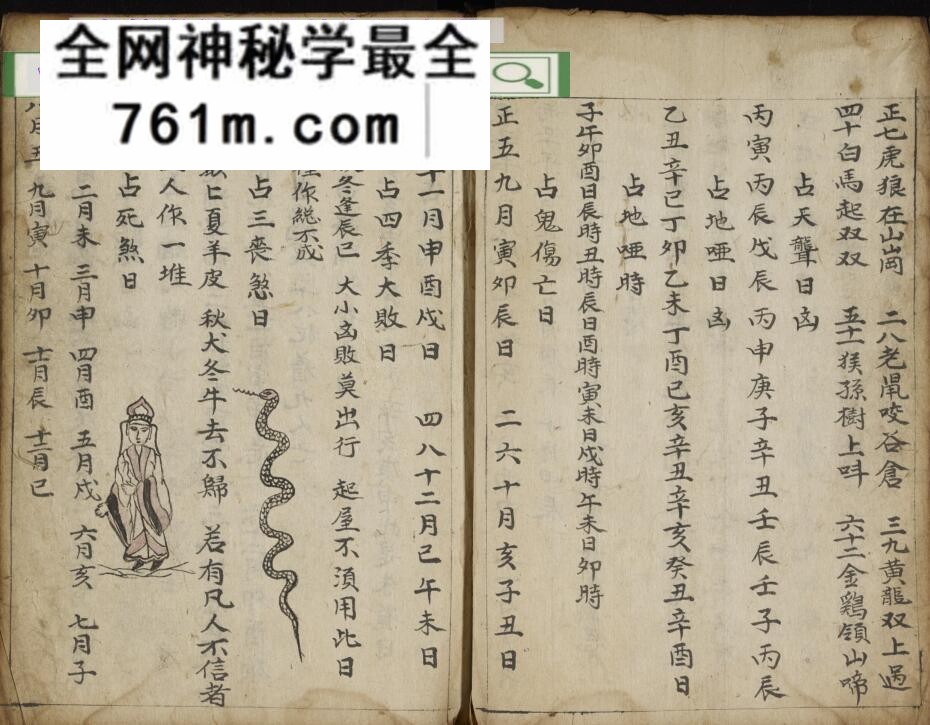 全网神秘学最全
761m.com
正七虎狼在山崗 二八老鼠咬谷倉 三九黃龍双上過
四十白馬起双双 五十一猴孫樹上呌 六十二金鷄領山啼
占天聾日凶
丙寅丙辰戊辰丙申庚子辛丑壬辰壬子丙辰
占地啞日凶
乙丑辛巳丁卯乙未丁酉巳亥辛丑辛亥癸丑辛酉日
占地啞時
子午卯酉日辰時丑時辰日酉時寅未日戌時午未日卯時
占鬼傷亡日
正五九月寅卯辰日 二六十月亥子丑日
十一月申酉戌日 四八十二月巳午未日
占四季大敗日
冬逢辰巳 大小凶敗莫出行 起屋不須用此日
作総不成
占三喪煞日
夏羊皮 秋犬冬牛去不歸 若有凡人不信者
人作一堆
占死煞日
二月未 三月申 四月酉 五月戌 六月亥 七月子
九月寅 十月卯 十一月辰 十二月巳